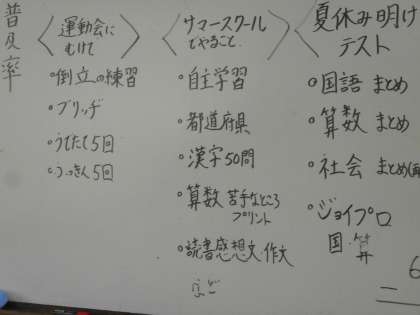 普及率
〈運動会に
むけて〉
・倒立の練習
・ブリッヂ
・うでたて5回
・ふっきん5回
〈サマースクール
でやること〉
・自主学習
・都道府県
・漢字50問
・算数 苦手なところ
プリント
・読書感想文・作文
など
〈夏休み明け
テスト
・国語 まとめ
・算数 まとめ
・社会 まとめ
・ジョイプロ
国・算
6
二